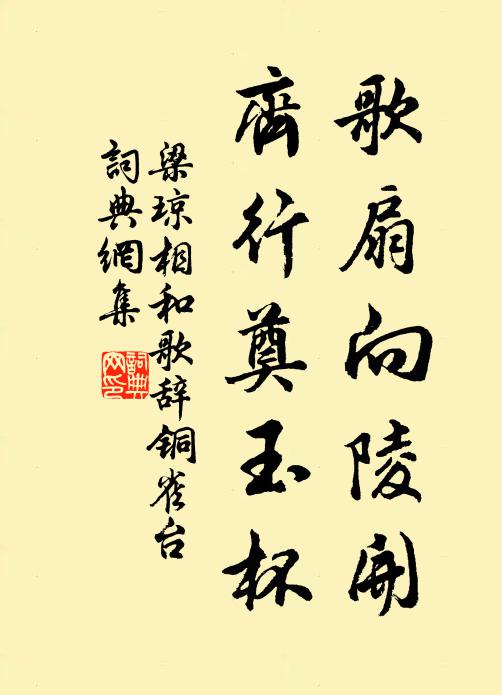 歌扇向陵開
齊行奠玉杯
梁琼相和歌辞铜雀台
詞典網集
詞典網印